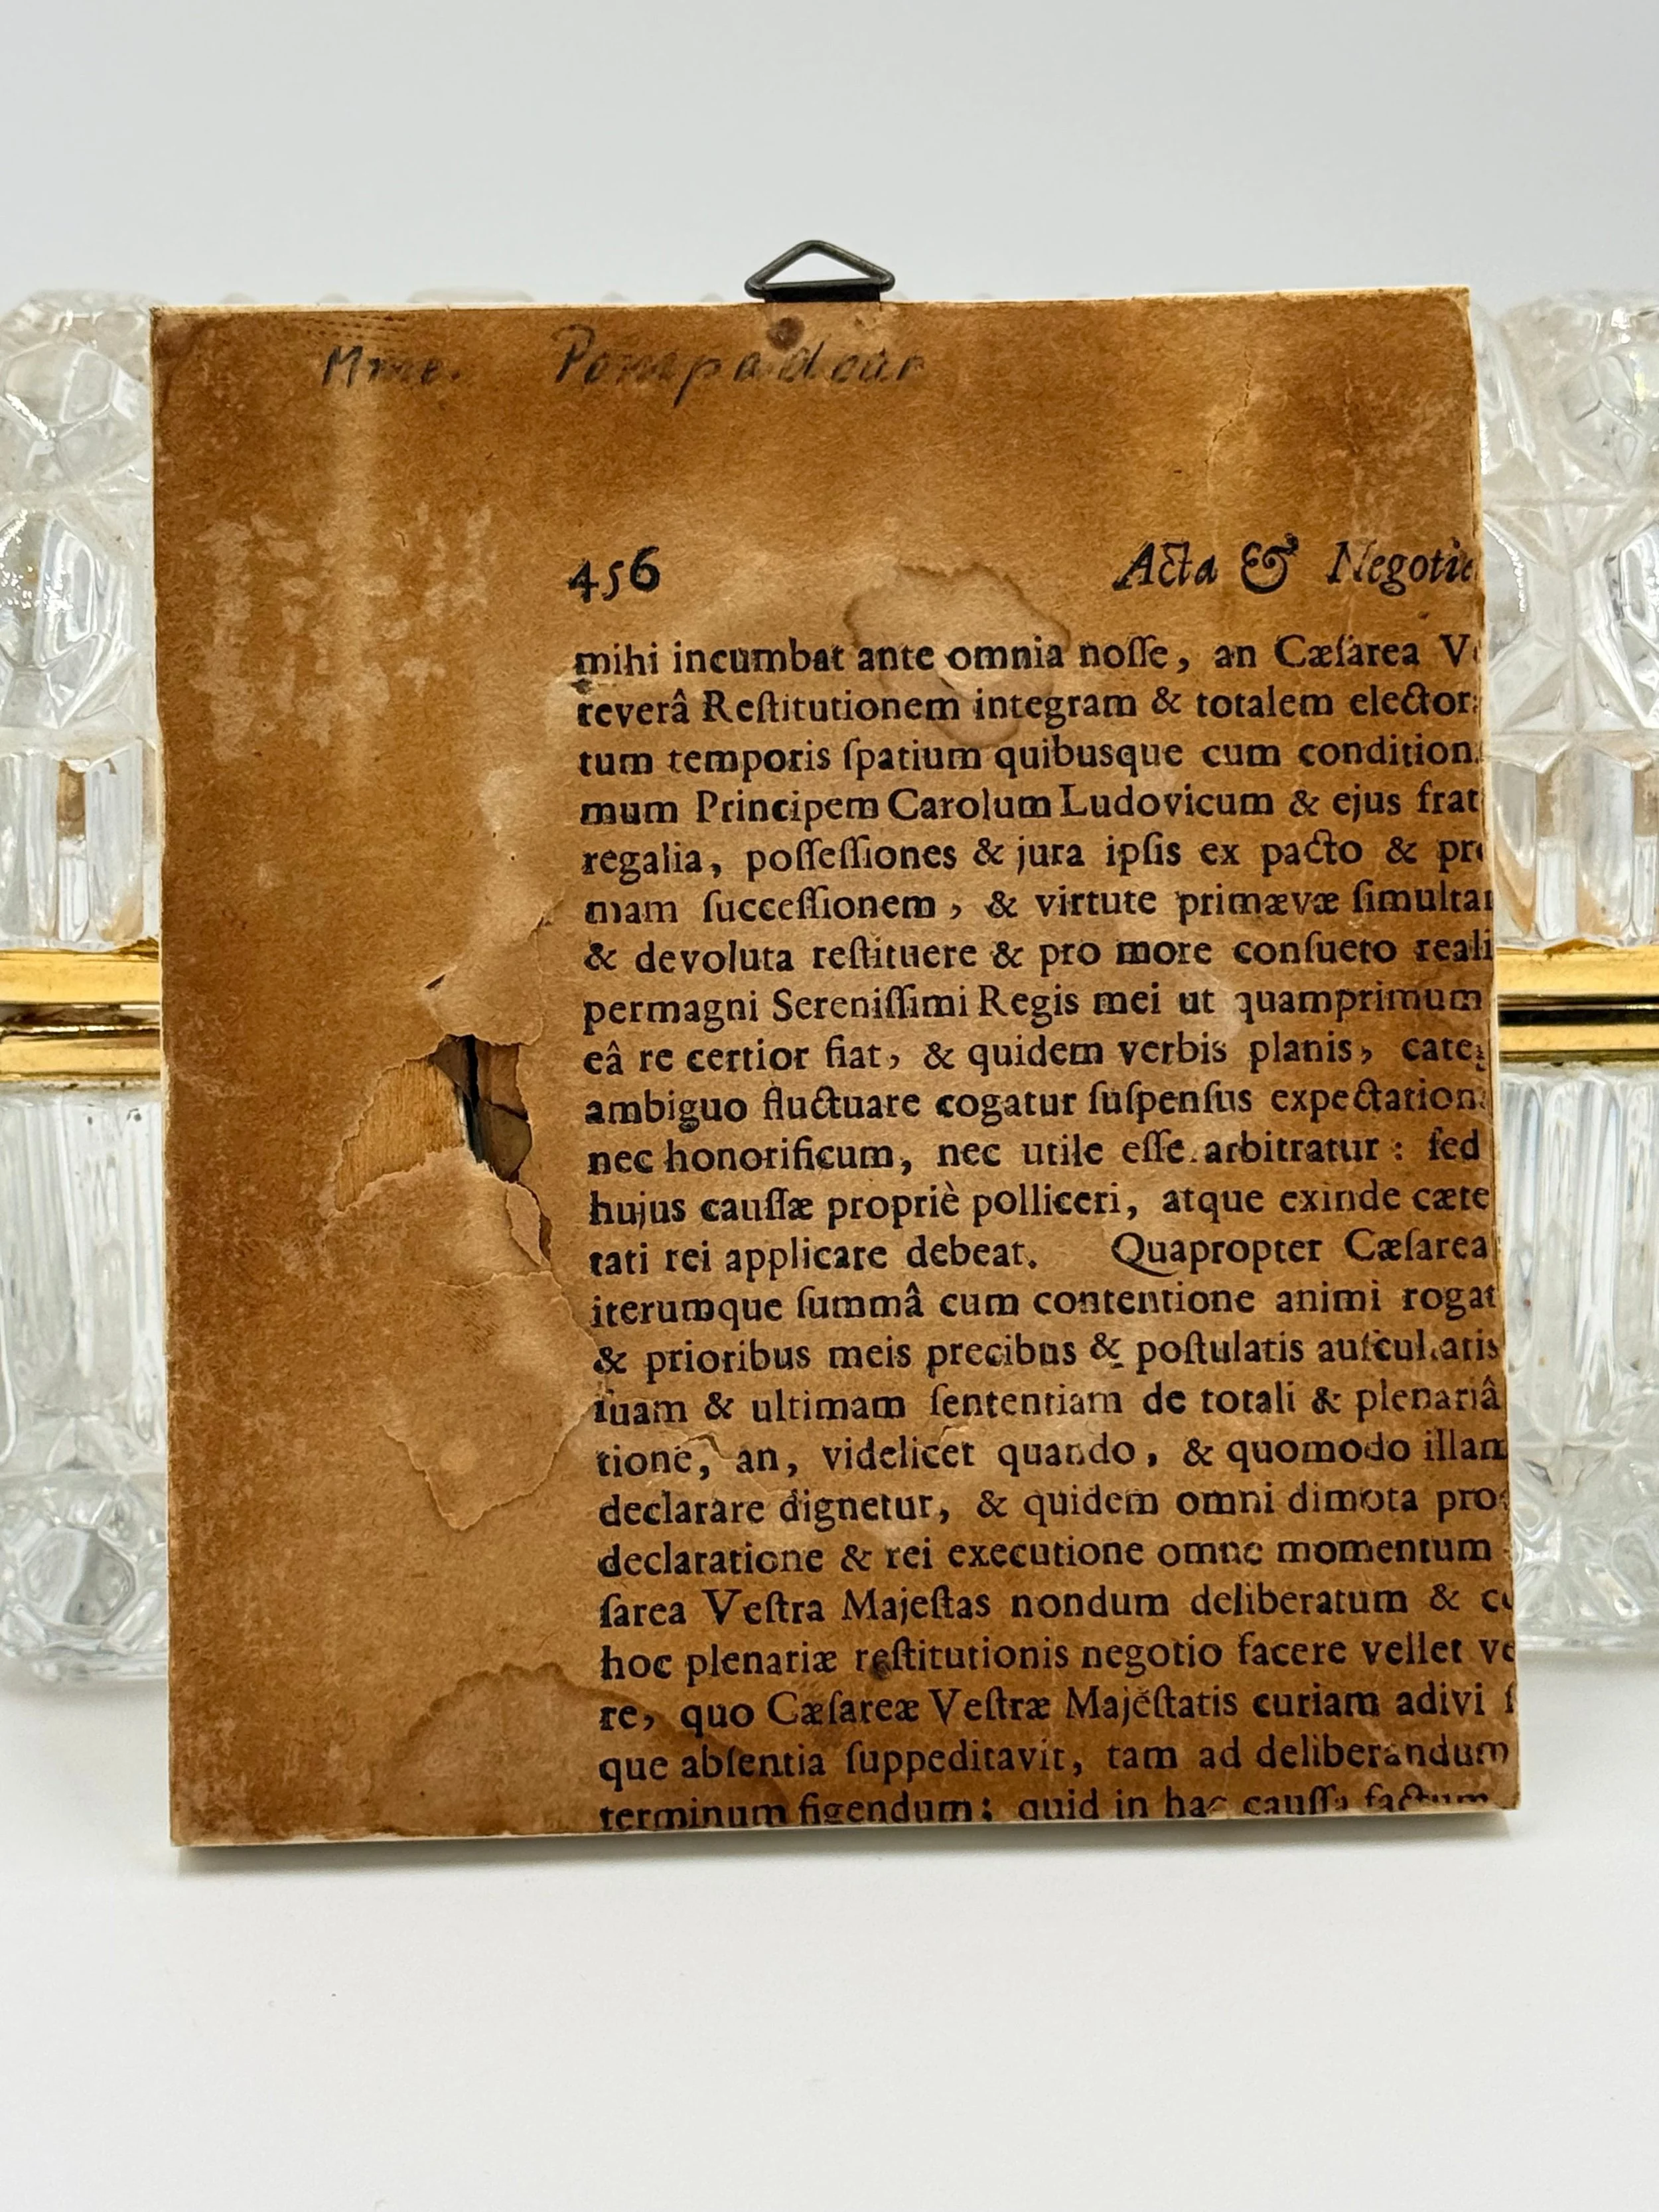 Mme. Pompadour
456 Acta & Negotia
mihi incumbat ante omnia noſſe, an Cæſarea V
reverâ Reſtitutionem integram & totalem elector
tum temporis ſpatium quibusque cum condition
mum Principem Carolum Ludovicum & ejus frat
regalia, poſſeſſiones & jura ipſis ex pacto & pr
mam ſucceſſionem, & virtute primævæ ſimulta
& devoluta reſtituere & pro more conſueto reali
permagni Sereniſſimi Regis mei ut quamprimum
eâ re certior fiat, & quidem verbis planis, cate
ambiguo fluctuare cogatur ſuſpenſus expectation
nec honorificum, nec utile eſſe arbitratur: ſed
hujus cauſſæ propriè polliceri, atque exinde cæte
tati rei applicare debeat. Quapropter Cæſarea
iterumque ſummâ cum contentione animi rogat
& prioribus meis precibus & poſtulatis auſcultatis
ſuam & ultimam ſententiam de totali & plenariâ
tione, an, videlicet quando, & quomodo illam
declarare dignetur, & quidem omni dimota pro
declaratione & rei executione omne momentum
ſarea Veſtra Majeſtas nondum deliberatum & c
hoc plenariæ reſtitutionis negotio facere vellet ve
re, quo Cæſareæ Veſtræ Majeſtatis curiam adivi ſ
que abſentia ſuppeditavit, tam ad deliberandum
terminum figendum; quid in hac cauſſa factum